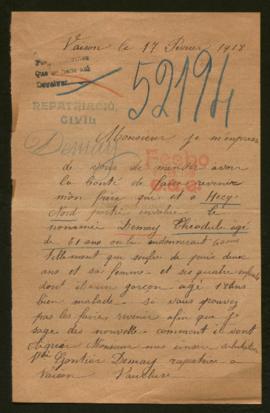 Vaison le 17 Février 1918
Que
Devolver
52194
REPATRIACIÓ
CIVIL
Demay
Monsieur je m'empresse
de vous de mander avoir
Fecho
la bonté de faire revenir
mon frère qui et a Hecq
Nord le
nommé Demay Theodule agé
de 51 ans
tellement que soufre de puis deux
ans et sa femme et ses quatre enfants
dont il a un garçon agé 18 ans
bien malade si vous pouvez
pas les faires revenir afin que je
sage des nouvelles comment il vont
Agréer Monsieur mes sincère
Gontier Demay rapatriée a
Vaison Vaucluse